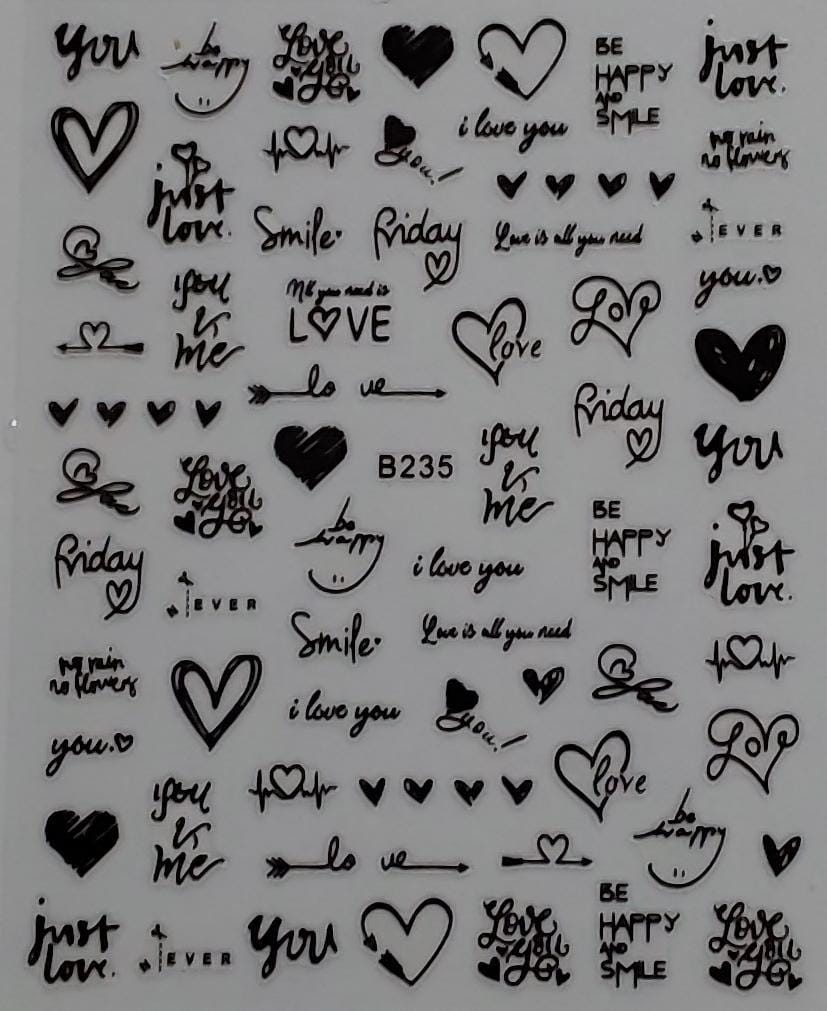 you
be happy
Love
you
BE
HAPPY
AND
SMILE
just
love.
i love you
you!
no rain
no flowers
just
love.
Smile
Friday
Love is all you need
EVER
you.
you
&
me
All you need is
LOVE
love
Love
lo ve
Friday
you
B235
you
&
me
Love
you
be happy
BE
HAPPY
AND
SMILE
just
love.
Friday
i love you
EVER
Smile
Love is all you need
no rain
no flowers
i love you
you!
you.
Love
love
you
&
me
be happy
lo ve
just
love.
EVER
you
Love
you
BE
HAPPY
AND
SMILE
Love
you